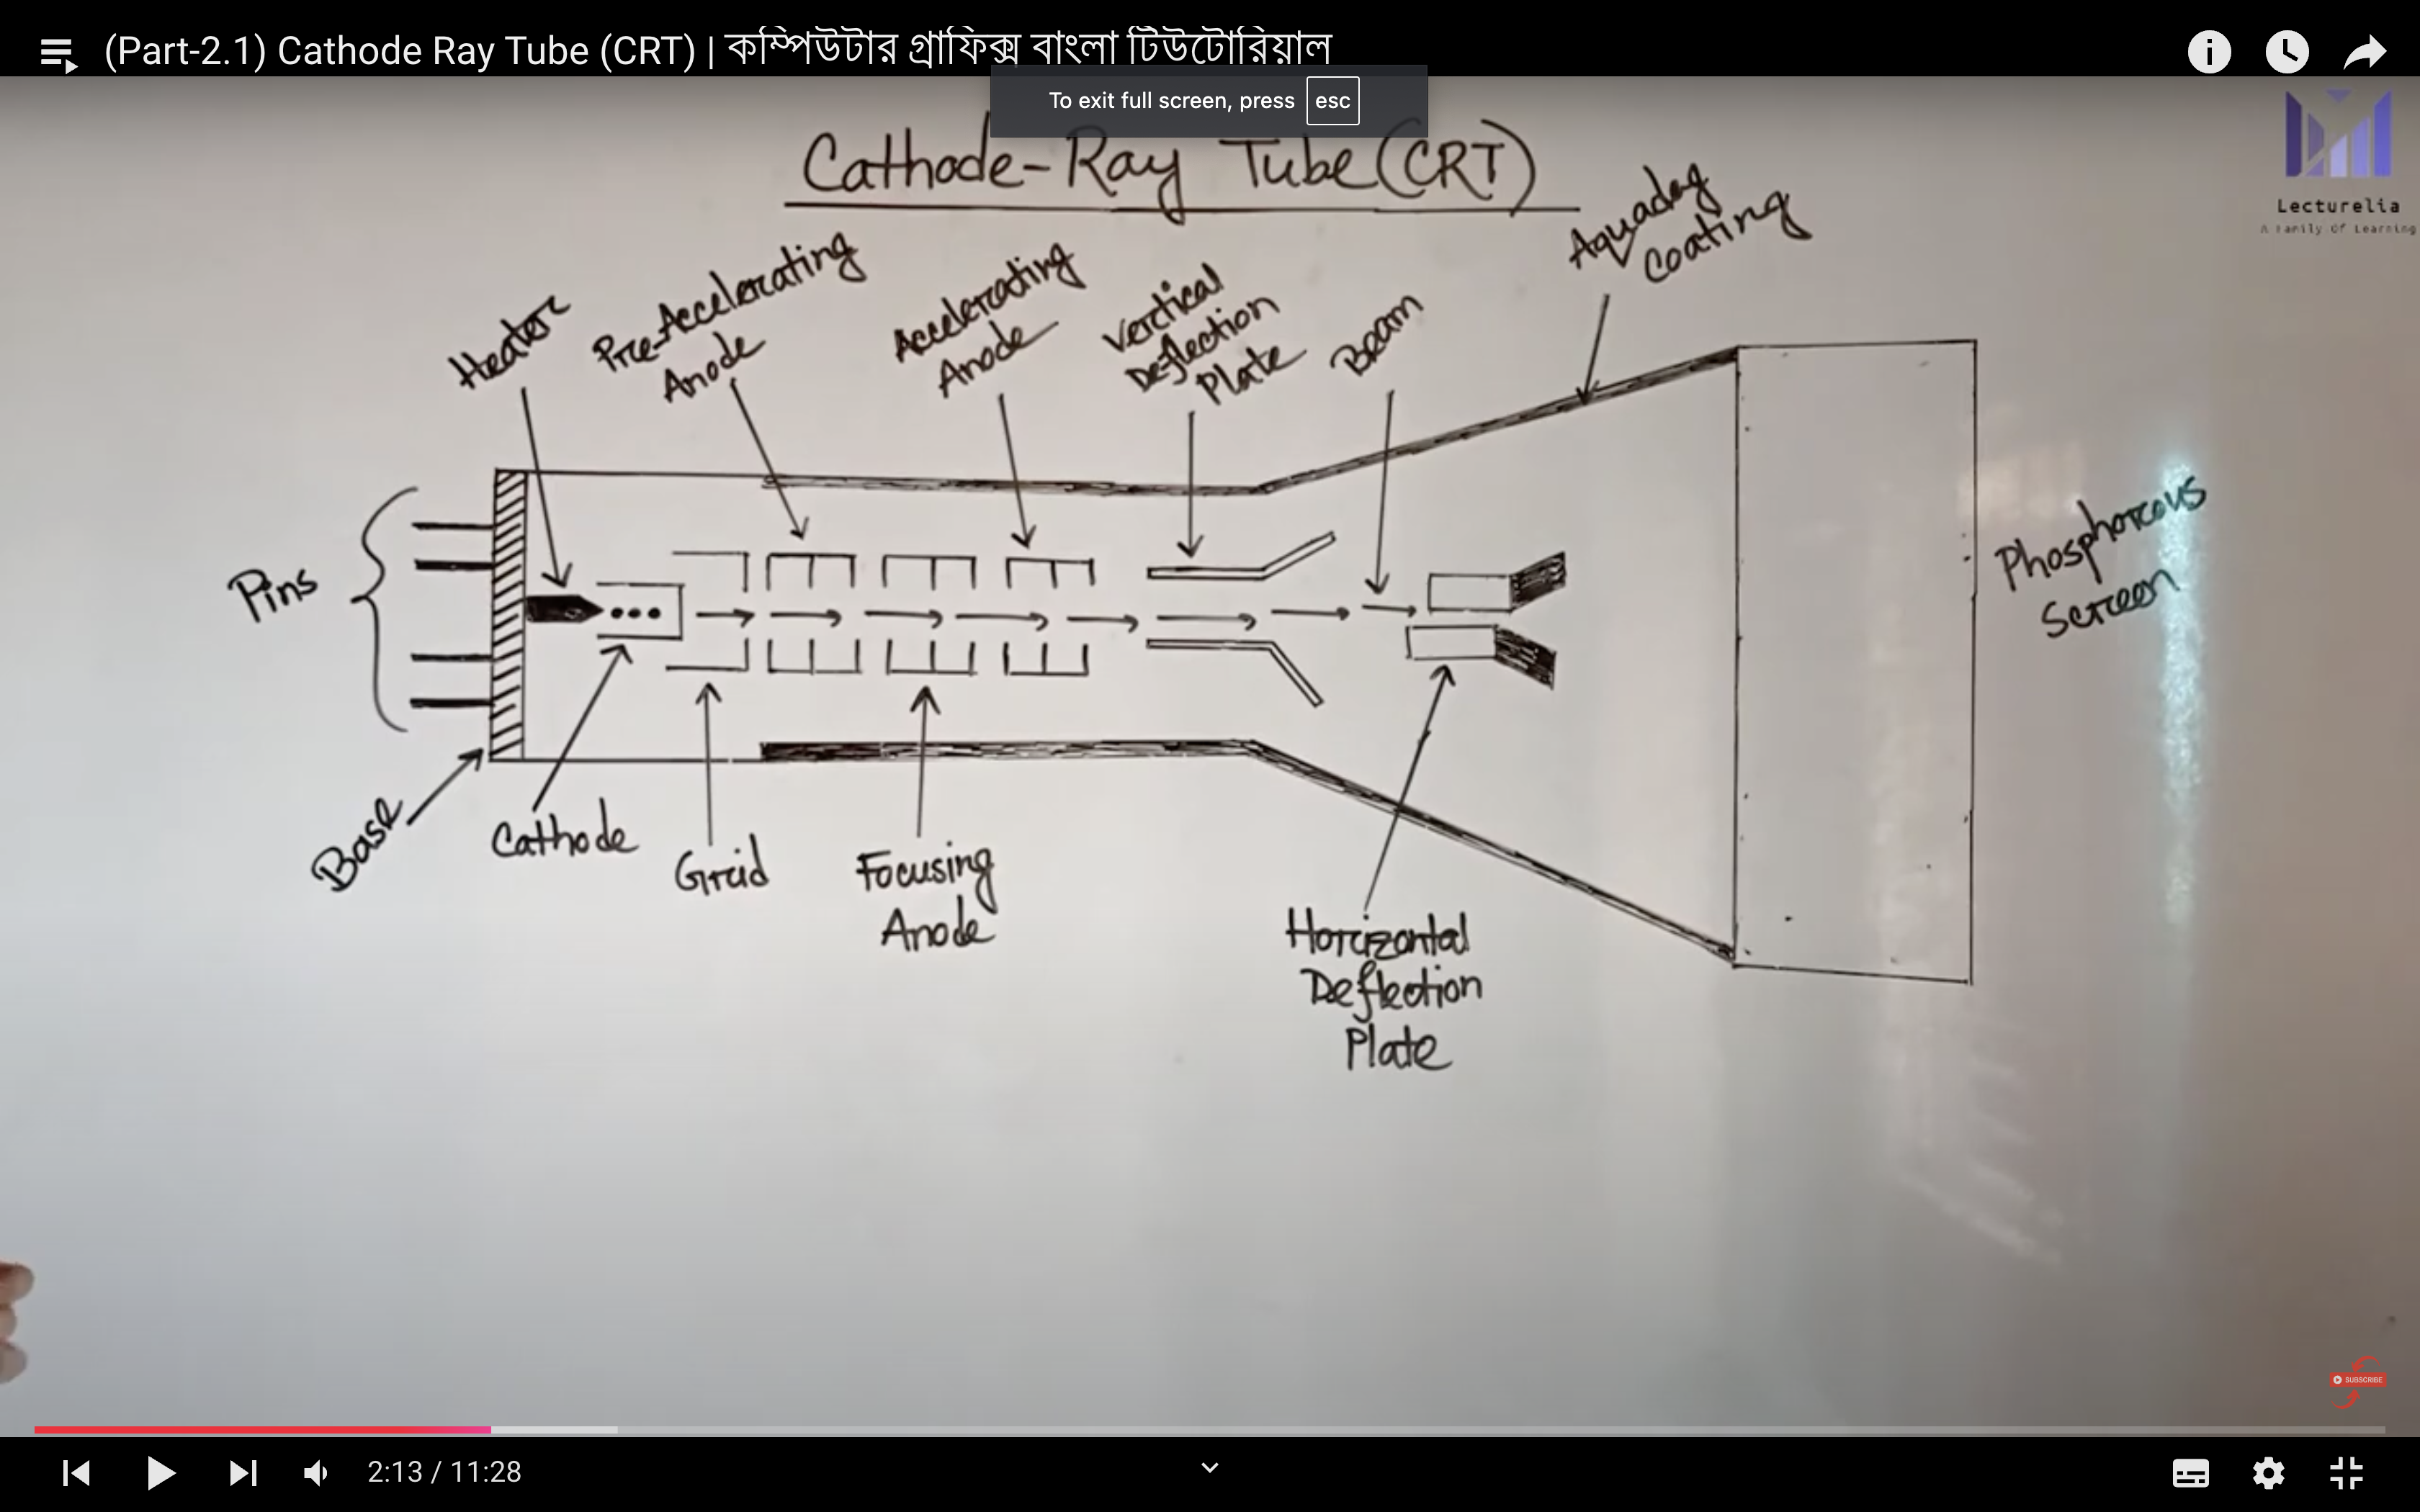 (Part-2.1) Cathode Ray Tube (CRT) | কম্পিউটার গ্রাফিক্স বাংলা টিউটোরিয়াল
To exit full screen, press esc
Cathode-Ray Tube (CRT)
Lecturelia
A Family Of Learning
Heater
Pre-Accelerating
Anode
Accelerating
Anode
Vertical
Deflection
Plate
Beam
Aquadag
Coating
Pins
Phosphorous
Screen
Base
Cathode
Grid
Focusing
Anode
Horizontal
Deflection
Plate
SUBSCRIBE
2:13 / 11:28